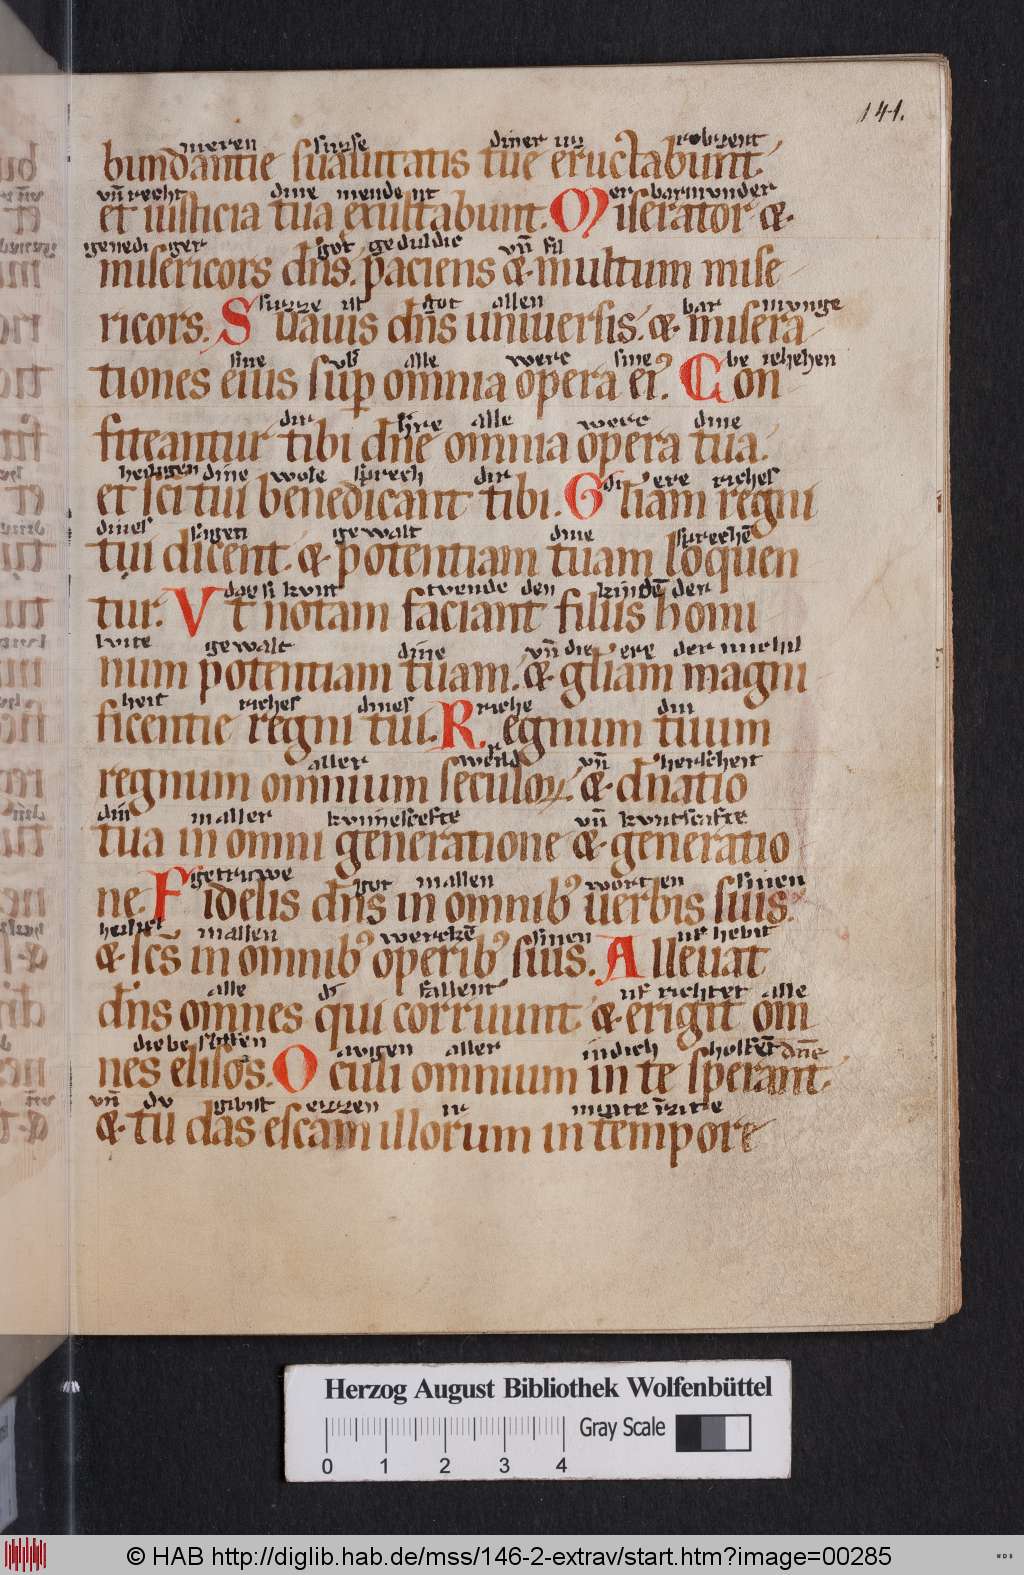 141.
meren suzse diner
bundantie suauitatis tue eructabunt
vn̄ recht dine mende nt
et iusticia tua exultabunt. Miserator &
genedi ger got geduldic vn̄ fil
misericors dn̄s. paciens & multum mise
suzze ist got allen bar munge
ricors. Suauis dn̄s uniuersis. & misera
sine vb alle werc sine be iehehen
tiones eius sup omnia opera ei9. Con
dir alle werc dine
fiteantur tibi dn̄e omnia opera tua.
heiligen dine wole sprech dir
et sc̄i tui benedicant tibi. Gl̄iam regni
ere riches
dines sagen gewalt dine sprechē
tui dicent. & potentiam tuam loquen
kunt tuende den kindē der
tur. Vt notam faciant filiis homi
lute gewalt dine vn̄ die ere der michil
num potentiam tuam. & gl̄iam magni
heit riches dines riche din
ficentie regni tui. Regnum tuum
aller werld vn̄ herscheit
regnum omnium seculoꝝ. & dn̄atio
din in aller vn̄
tua in omni generatione & generatio
getruwe got in allen worten sinen
ne. Fidelis dn̄s in omnib9 uerbis suis.
in allen werckē sinen uf hebit
& sc̄s in omnib9 operib9 suis. Alleuat
alle di fallent uf richtet alle
dn̄s omnes qui corruunt & erigit om
augen aller in dich
nes elisos. Oculi omnium in te sperant dn̄e
vn̄ du gibist ezzen ir
& tu das escam illorum in tempore
Herzog August Bibliothek Wolfenbüttel
Gray Scale
0 1 2 3 4
© HAB http://diglib.hab.de/mss/146-2-extrav/start.htm?image=00285